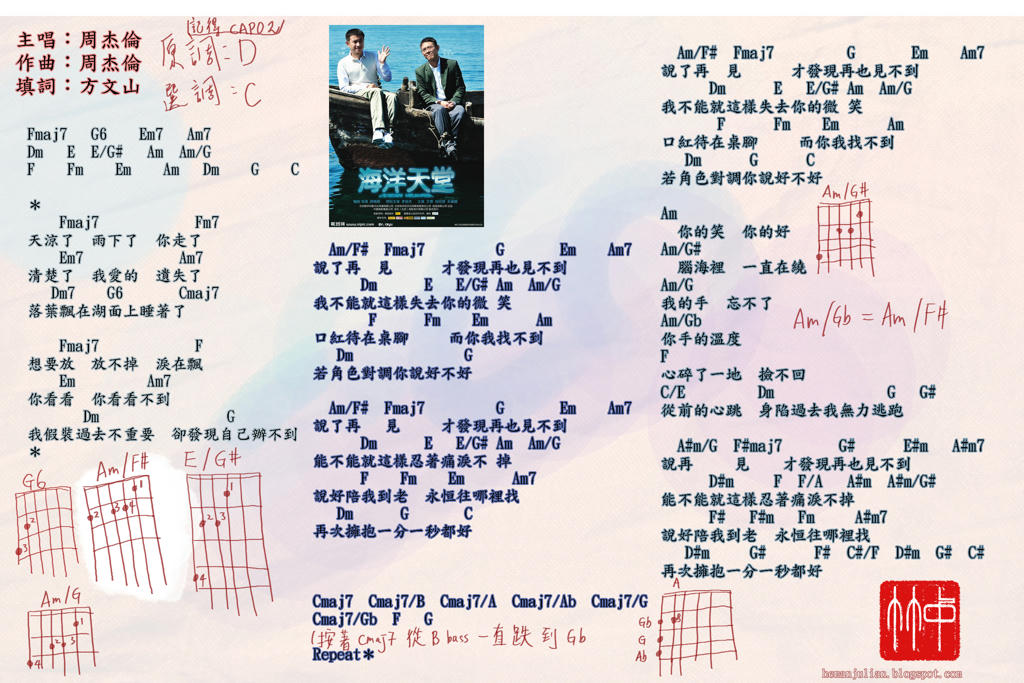 主唱：周杰倫
作曲：周杰倫
填詞：方文山
記得 CAPO 2
原調：D
選調：C
Fmaj7 G6 Em7 Am7
Dm E E/G# Am Am/G
F Fm Em Am Dm G C
*
Fmaj7 Fm7
天涼了 雨下了 你走了
Em7 Am7
清楚了 我愛的 遺失了
Dm7 G6 Cmaj7
落葉飄在湖面上睡著了
Fmaj7 F
想要放 放不掉 淚在飄
Em Am7
你看看 你看看不到
Dm G
我假裝過去不重要 卻發現自己辦不到
*
G6
2
3
Am/F#
1
2
3
4
E/G#
1
2
3
4
Am/G
1
2
3
4
海洋天堂
Am/F# Fmaj7 G Em Am7
說了再 見 才發現再也見不到
Dm E E/G# Am Am/G
我不能就這樣失去你的微 笑
F Fm Em Am
口紅待在桌腳 而你我找不到
Dm G
若角色對調你說好不好
Am/F# Fmaj7 G Em Am7
說了再 見 才發現再也見不到
Dm E E/G# Am Am/G
能不能就這樣忍著痛淚不 掉
F Fm Em Am7
說好陪我到老 永恒往哪裡找
Dm G C
再次擁抱一分一秒都好
Cmaj7 Cmaj7/B Cmaj7/A Cmaj7/Ab Cmaj7/G
Cmaj7/Gb F G
(按著 Cmaj7 從 B bass 一直跌到 Gb
Repeat*
Am/F# Fmaj7 G Em Am7
說了再 見 才發現再也見不到
Dm E E/G# Am Am/G
我不能就這樣失去你的微 笑
F Fm Em Am
口紅待在桌腳 而你我找不到
Dm G C
若角色對調你說好不好
Am
你的笑 你的好
Am/G#
腦海裡 一直在繞
Am/G
我的手 忘不了
Am/Gb
你手的溫度
F
心碎了一地 撿不回
C/E Dm G G#
從前的心跳 身陷過去我無力逃跑
Am/G#
Am/Gb = Am/F#
A#m/G F#maj7 G# E#m A#m7
說再 見 才發現再也見不到
D#m F F/A A#m A#m/G#
能不能就這樣忍著痛淚不掉
F# F#m Fm A#m7
說好陪我到老 永恒往哪裡找
D#m G# F# C#/F D#m G# C#
再次擁抱一分一秒都好
A
Gb
G
Ab
hemanjulian.blogspot.com